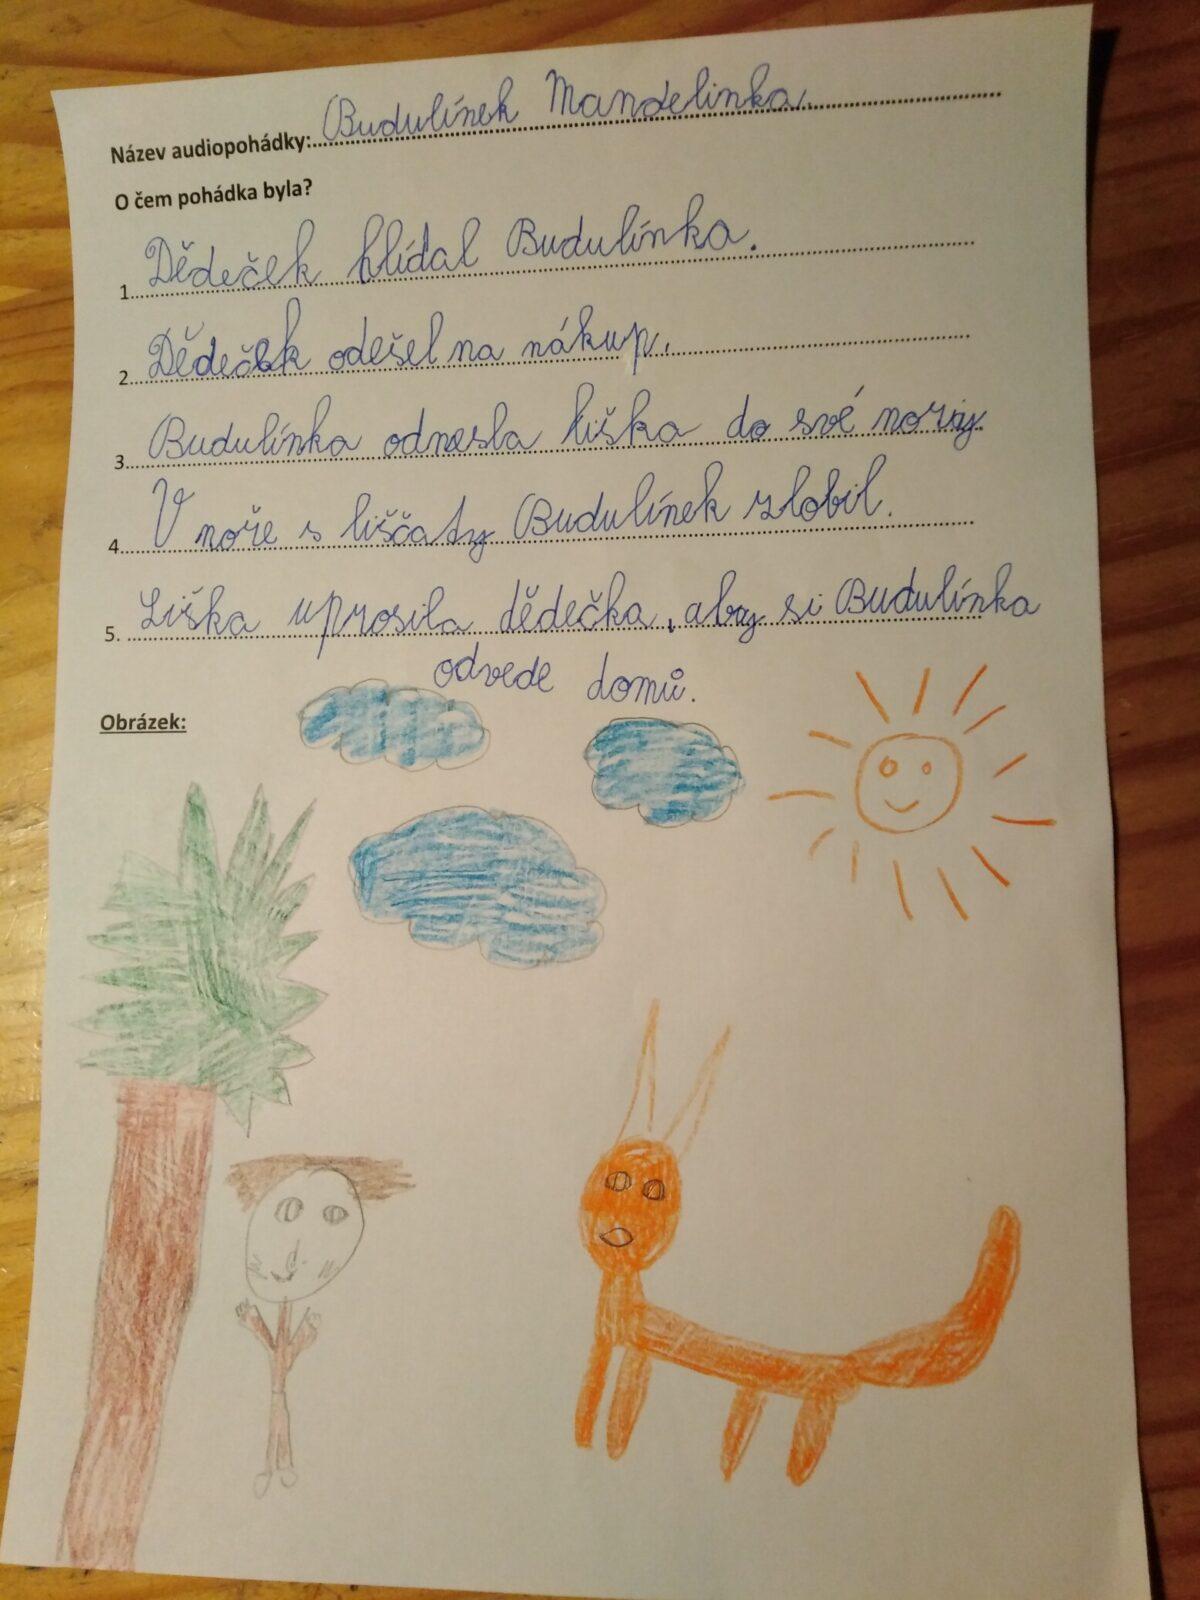 Název audiopohádky: Budulínek Mandelinka.
O čem pohádka byla?
1. Dědeček hlídal Budulínka.
2. Dědeček odešel na nákup.
3. Budulínka odnesla liška do své nory.
4. V noře s liščaty Budulínek zlobil.
5. Liška uprosila dědečka, aby si Budulínka
odvede domů.
Obrázek: